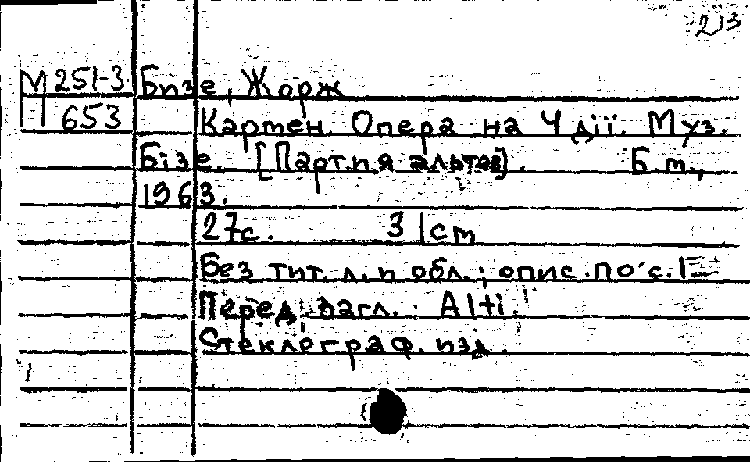 213
М 251-3 Бизе, Жорж
П 653 Кармен. Опера на 4 дії. Муз.
Бізе. [Партия альтов]. Б.м.,
1963.
27с. 31 cm
Без тит. л. и обл.; опис. по с. 1=
Перед загл.: Alti.
Стеклограф. изд.